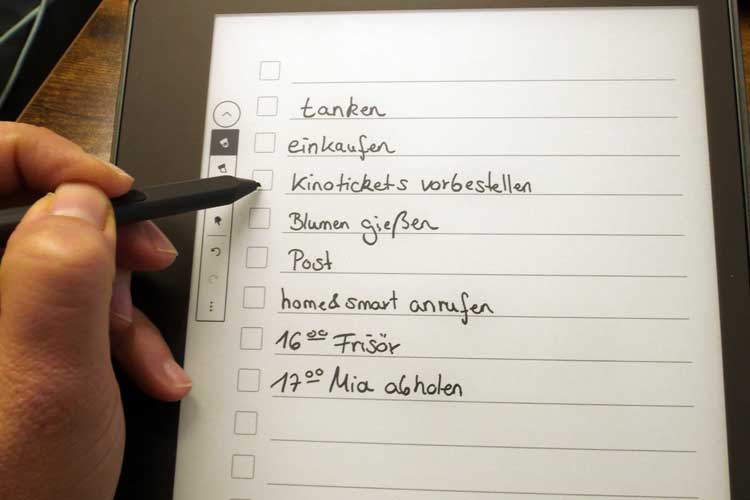 tanken
einkaufen
Kinotickets vorbestellen
Blumen gießen
Post
home&smart anrufen
16⁰⁰ Frisör
17⁰⁰ Mia abholen